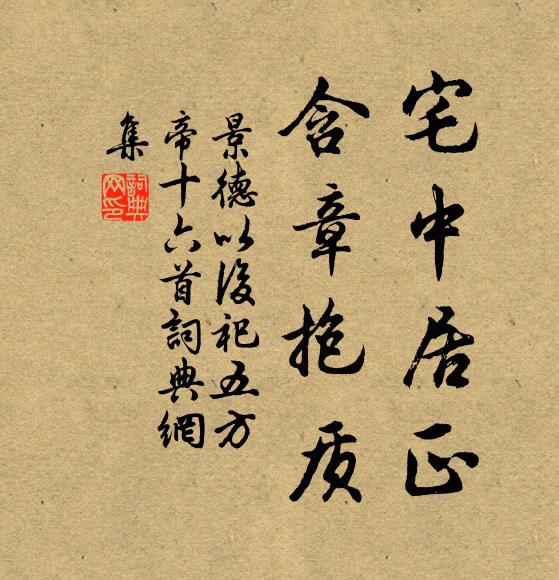 宅中居正
含章抱质
景德以後祀五方
帝十六首詞典網
集
詞典
网印